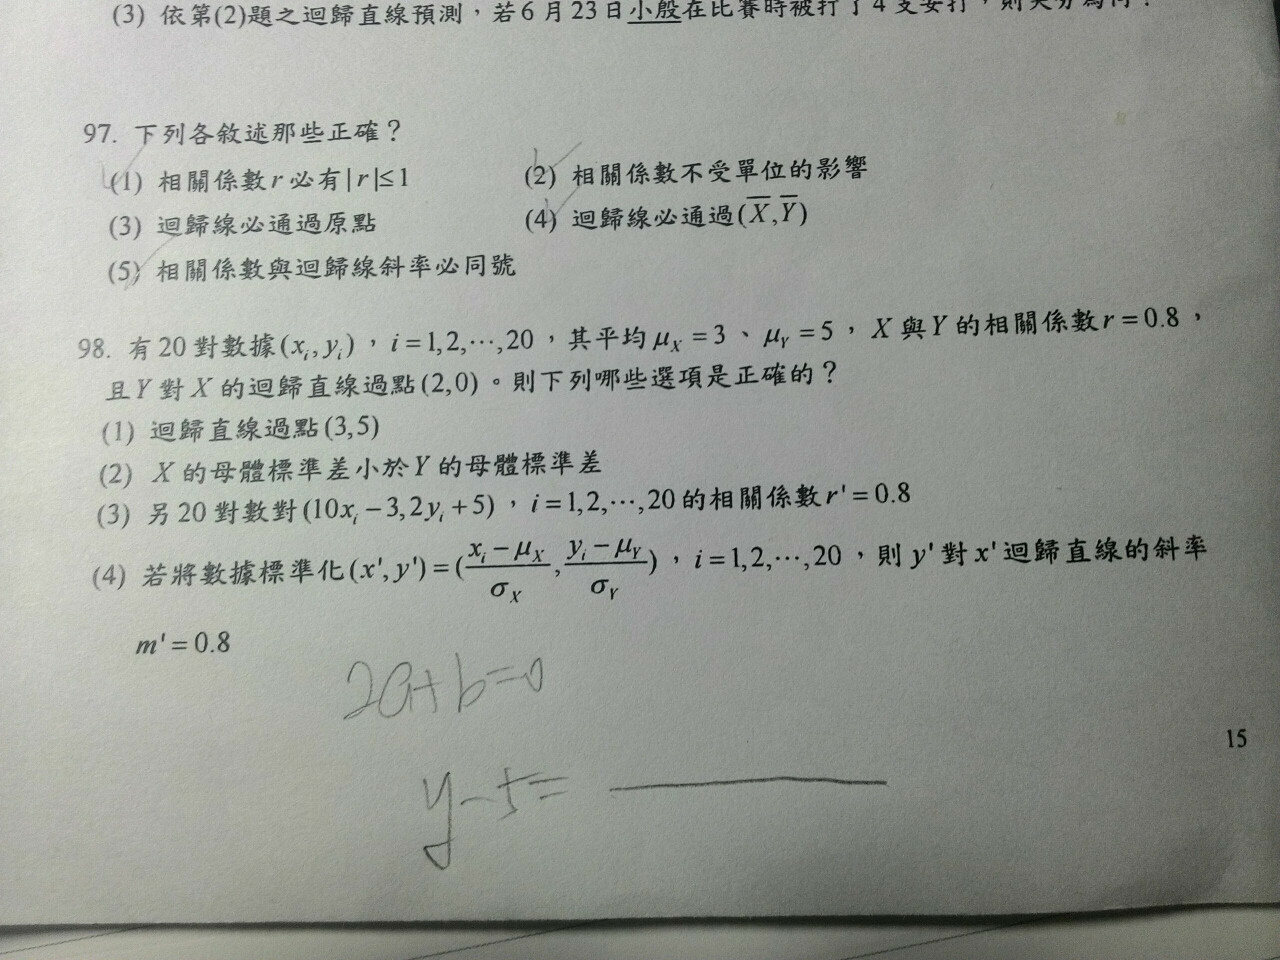 (3) 依第(2)題之迴歸直線預測，若6月23日小殷在比賽時被打了4支安打，則失分為何？
97. 下列各敘述那些正確？
(1) 相關係數r必有|r|≤1 (2) 相關係數不受單位的影響
(3) 迴歸線必通過原點 (4) 迴歸線必通過(X̅,Y̅)
(5) 相關係數與迴歸線斜率必同號
98. 有20對數據(xᵢ,yᵢ)，i=1,2,⋯,20，其平均μ_X=3、μ_Y=5，X與Y的相關係數r=0.8，
且Y對X的迴歸直線過點(2,0)。則下列哪些選項是正確的？
(1) 迴歸直線過點(3,5)
(2) X的母體標準差小於Y的母體標準差
(3) 另20對數對(10xᵢ−3,2yᵢ+5)，i=1,2,⋯,20的相關係數r'=0.8
(4) 若將數據標準化(x',y')=((xᵢ−μ_X)/σ_X,(yᵢ−μ_Y)/σ_Y)，i=1,2,⋯,20，則y'對x'迴歸直線的斜率
m'=0.8
2a+b=0
y-5=
15